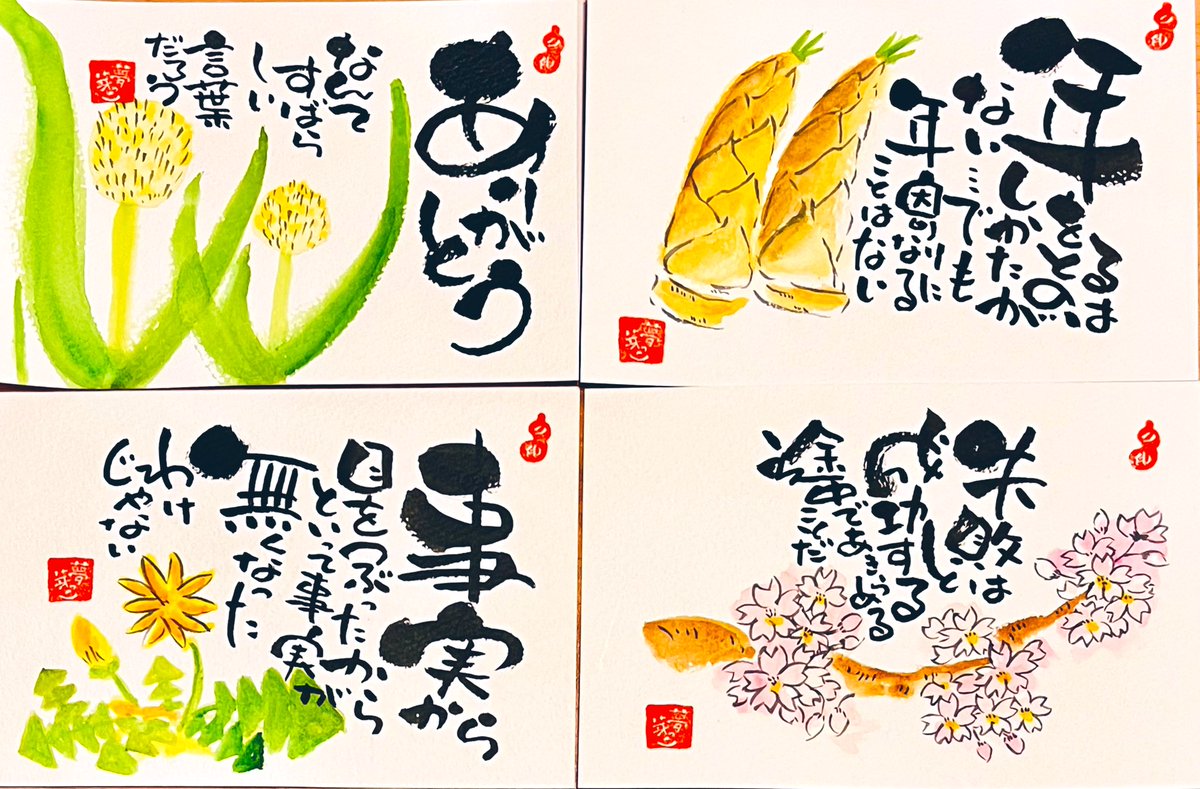 ありがとう
なんて
すばら
しい
言葉
だろう
年をとるのは
しかたが
ない…でも
年寄りになる
ことはない
事実から
目をつぶったから
といって事実が
無くなった
わけ
じゃない
失敗とは
成功する
途中であきらめる
ことだ